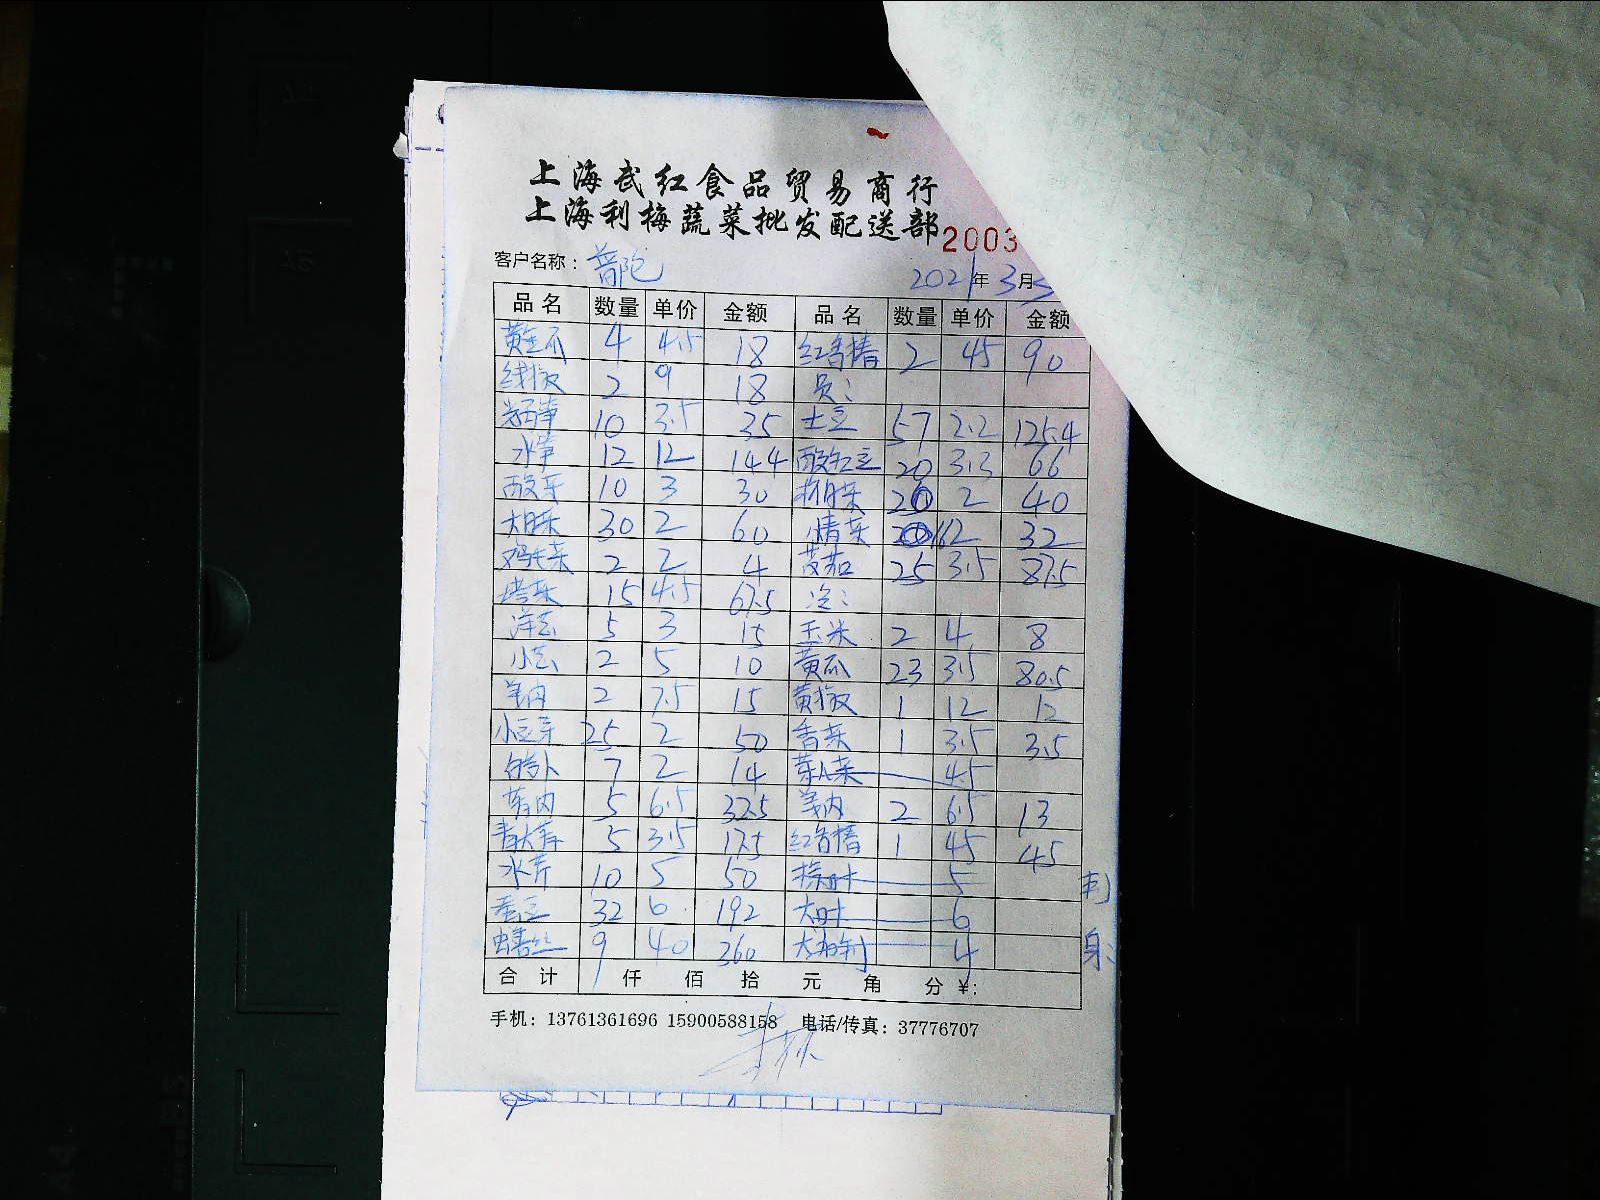 上海武红食品贸易商行
上海利梅蔬菜批发配送部
2003
客户名称：普陀
2021年3月
品名 数量 单价 金额 品名 数量 单价 金额
黄金瓜 4 4.5 18 红香椿 2 45 90
线椒 2 9 18 员：
10 3.5 35 土豆 57 2.2 125.4
水笋 12 12 144 酸豇豆 20 3.3 66
酸菜 10 3 30 20 2 40
30 2 60 小青菜 16 2 32
鸡毛菜 2 2 4 茭茄 25 3.5 87.5
塔菜 15 4.5 67.5 冷：
洋芋 5 3 15 玉米 2 4 8
小芋 2 5 10 黄瓜 23 3.5 80.5
2 7.5 15 黄椒 1 12 12
小豆芽 25 2 50 香菜 1 3.5 3.5
白萝卜 7 2 14 45
5 6.5 32.5 2 6.5 13
青大蒜 5 3.5 17.5 红香椿 1 45 45
水芹 10 5 50 5
蚕豆 32 6 192 大叶 6
鳝丝 9 40 360 4
合计 仟 佰 拾 元 角 分 ¥:
手机：13761361696 15900588158 电话/传真：37776707